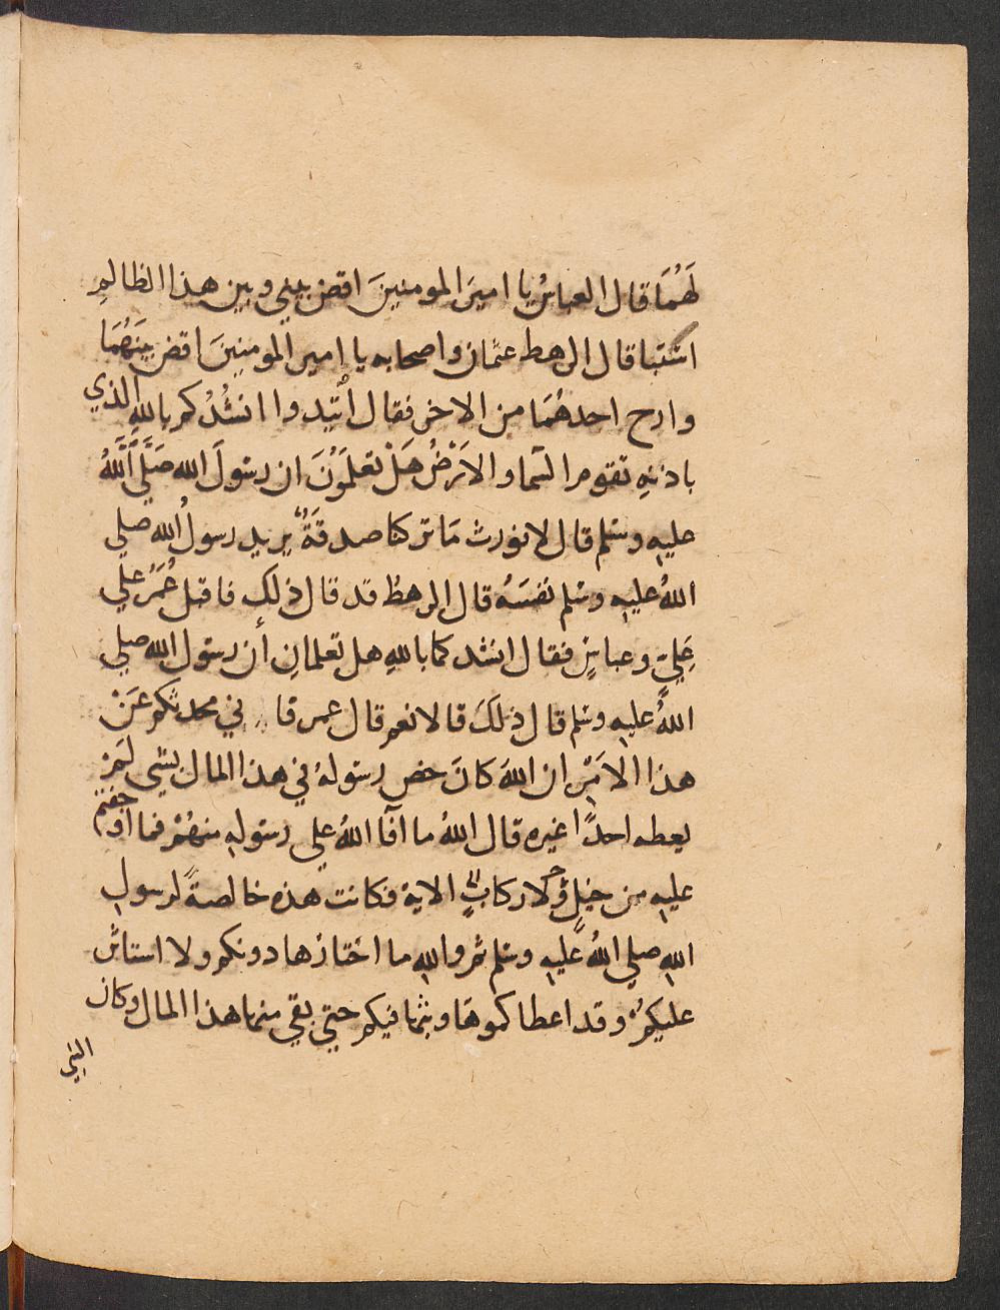 لَهُمَا قال العباسُ يا اميرَ المومنينَ اقض بيني وبين هذا الظالمِ
استبا قال الرهط عثمان واصحابه يا امير المومنِينَ اقض بينَهُمَا
وارح احدهُمَا من الاخر فقال اتيدوا انشُدُكم باللهِ الذي
باذنهِ تقوم السما والارْضُ هَلْ تعلمَوُنَ ان رسولَ الله صَلَّى اللَّهُ
عليهِ وسَلم قال لا نورث مَا تركنا صدقَةٌ يريد رسولُ الله صلي
اللهُ عليهِ وسَلم نفسَهُ قال الرهطُ قد قال ذلك فاقبل عُمَرُ علَي
عَلِيٍّ وعباسٍ فقال انشدكما باللهِ هل تعلمانِ أن رسول الله صلي
اللهُ عليهِ وسَلم قال ذلكَ قالا نعم قال عمر فا ني محدثكم عَنْ
هذا الامْرِ ان اللهَ كانَ خص رسولهُ في هذا المال بشي لَمْ
يعطه احدًا غيره قال اللهُ ما آفا اللهُ علي رسوله منهُمْ فما اوجفتم
عليهِ من خيلٍ ولا ركابٍ الاية فكانت هذه خالصةً لرسولِ
اللهِ صلي اللهُ عليْهِ وسَلم ثم واللهِ ما اختازها دونكم ولا استاثر
عليكمْ وقد اعطاكموهَا وبثها فيكم حتي بقي منها هذا المال وكان
النبي